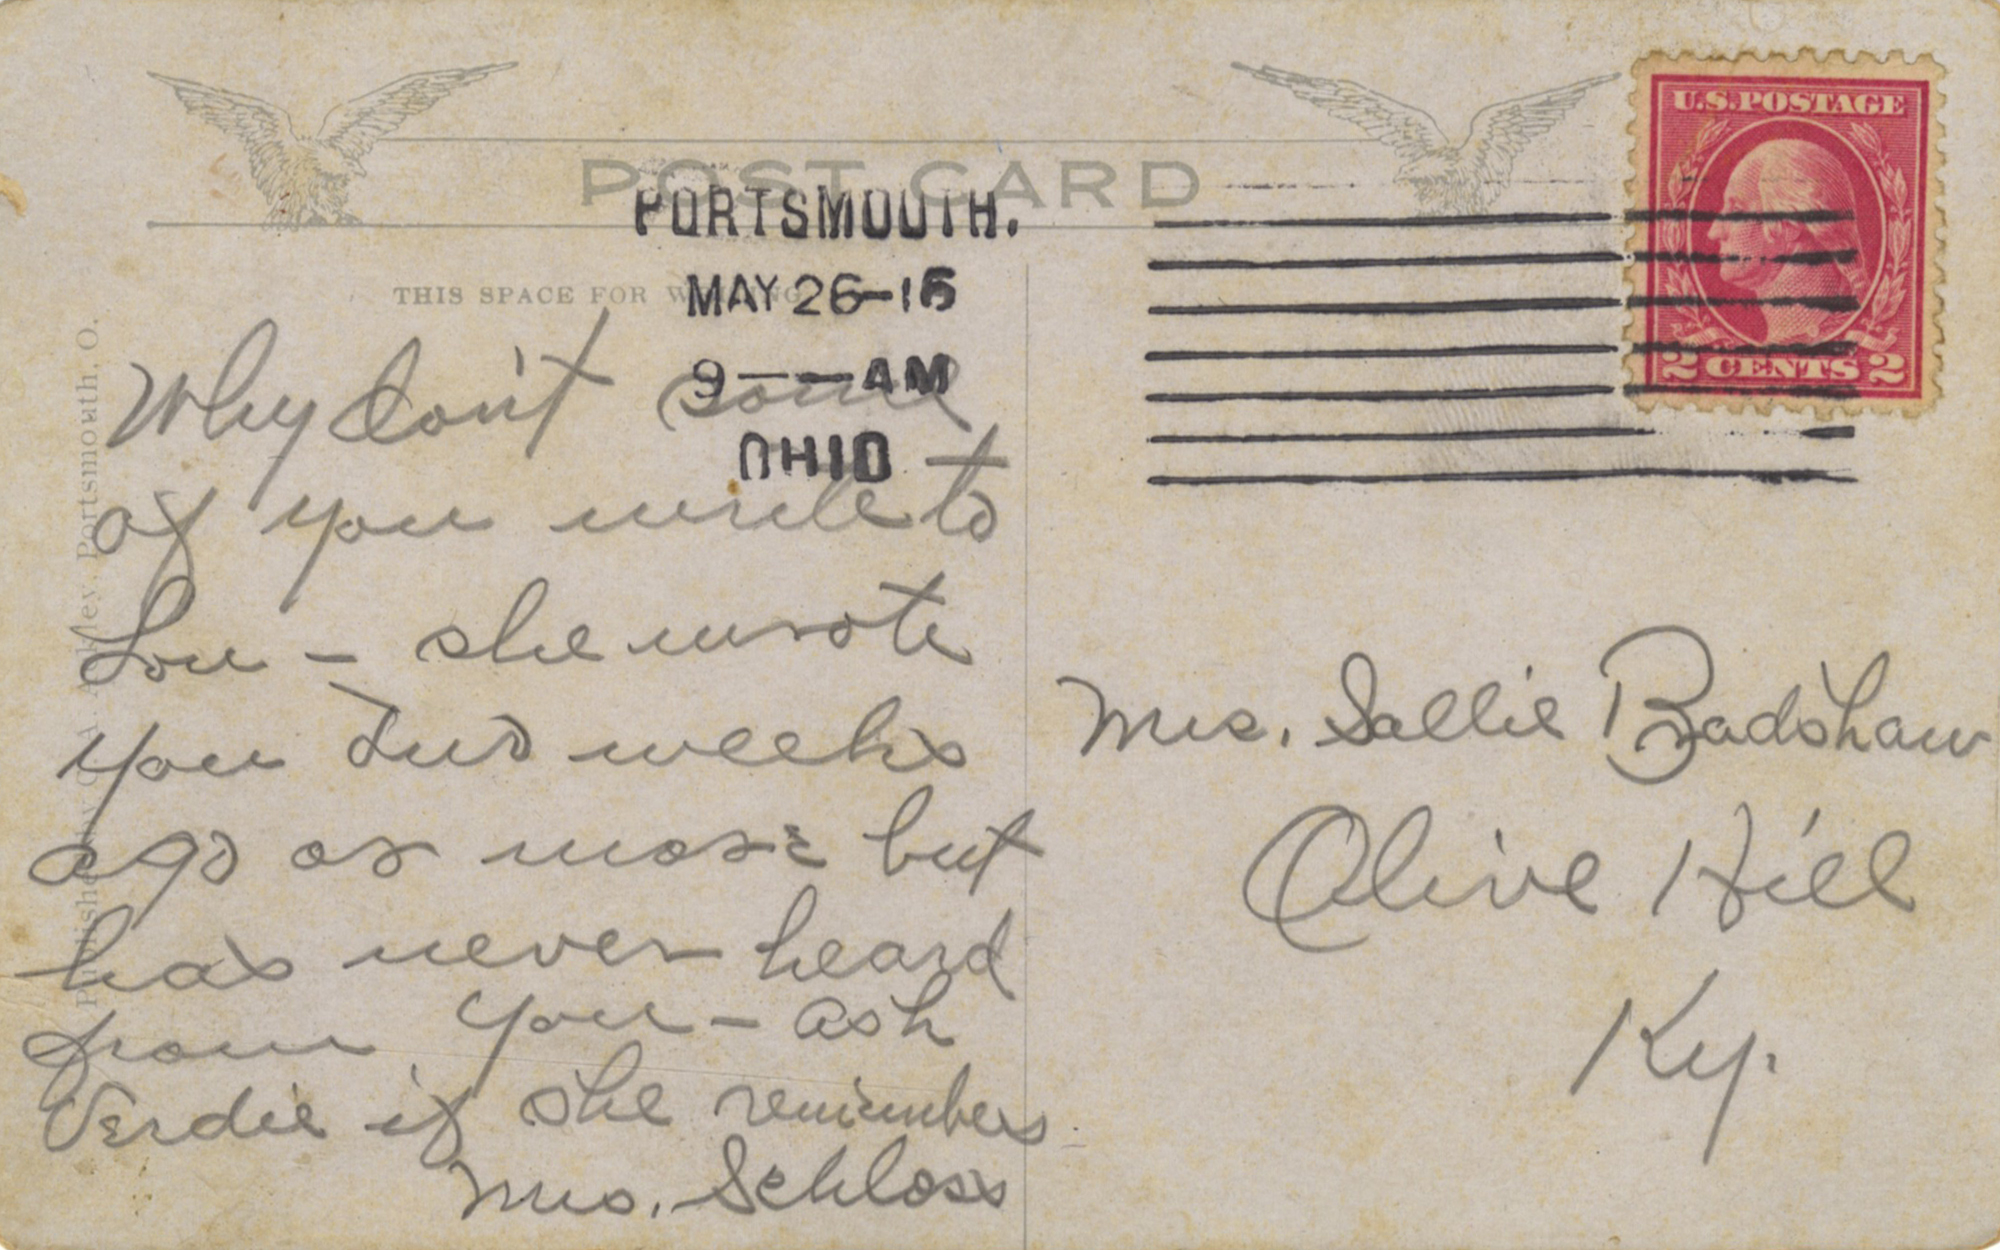 POST CARD
U.S. POSTAGE
2 CENTS 2
PORTSMOUTH.
MAY 26-16
9 — — AM
OHIO
THIS SPACE FOR WRITING
Why don't some
of you write to
Lou – she wrote
you two weeks
ago or more but
has never heard
from you – ask
Verdie if she remembers
Mrs. Schloss
Mrs. Sallie Bradshaw
Olive Hill
Ky.
Published by Portsmouth, O.